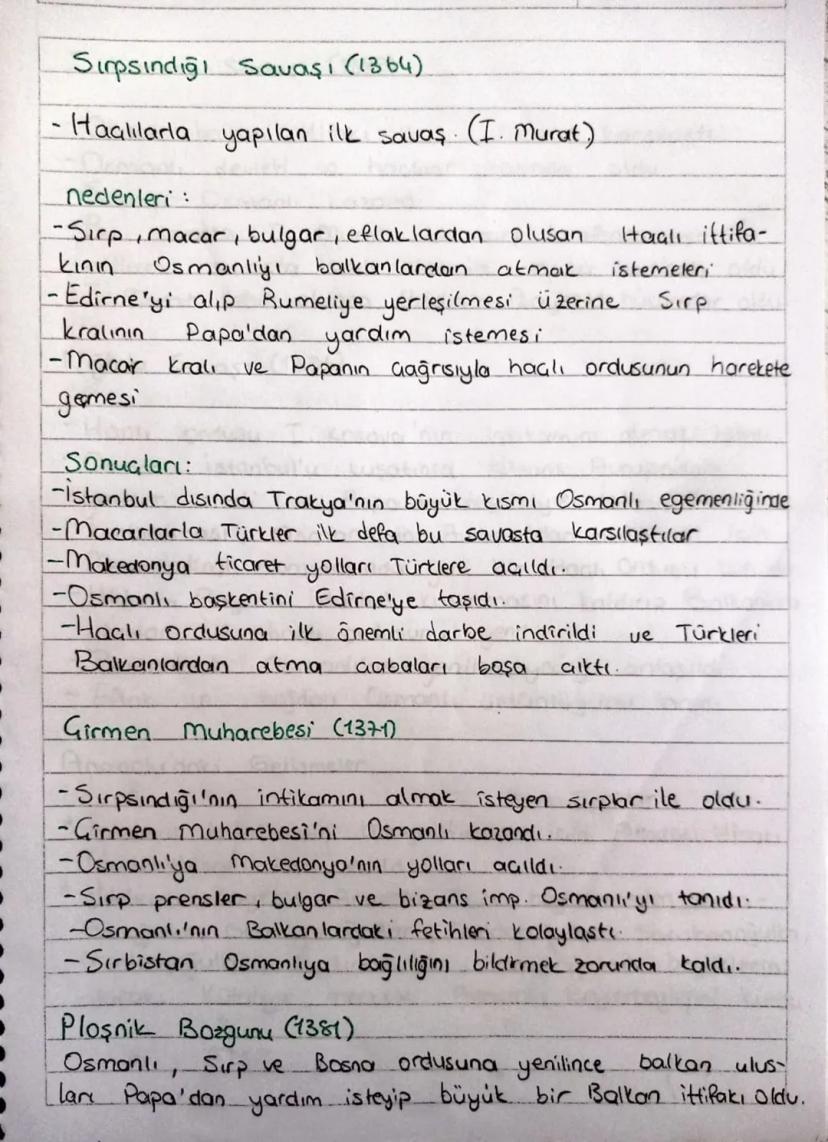 Sırpsındığı Savaşı (1364)
- Haçlılarla yapılan ilk savaş. (I. Murat)
nedenleri :
- Sırp, macar, bulgar, eflaklardan oluşan Haçlı ittifa-
kının Osmanlıyı balkanlardan atmak istemeleri
- Edirne'yi alıp Rumeliye yerleşilmesi üzerine Sırp
kralının Papa'dan yardım istemesi
- Macar kralı ve Papanın çağrısıyla haçlı ordusunun harekete
geçmesi
Sonuçları:
- İstanbul dısında Trakya'nın büyük kısmı Osmanlı egemenliğinde
- Macarlarla Türkler ilk defa bu savasta karsılaştılar
- Makedonya ticaret yolları Türklere açıldı.
- Osmanlı başkentini Edirne'ye taşıdı.
- Haçlı ordusuna ilk önemli darbe indirildi ve Türkleri
Balkanlardan atma çabaları boşa çıktı.
Çirmen Muharebesi (1371)
- Sırpsındığı'nın intikamını almak isteyen sırplar ile oldu.
- Çirmen Muharebesi'ni Osmanlı kazandı.
- Osmanlı'ya Makedonya'nın yolları açıldı.
- Sırp prensler, bulgar ve bizans imp. Osmanlı'yı tanıdı.
- Osmanlı'nın Balkanlardaki fetihleri kolaylaştı.
- Sırbistan Osmanlıya bağlılığını bildirmek zorunda kaldı.
Ploşnik Bozgunu (1381)
Osmanlı, Sırp ve Bosna ordusuna yenilince balkan ulus-
ları Papa'dan yardım isteyip büyük bir Balkan ittifakı oldu.